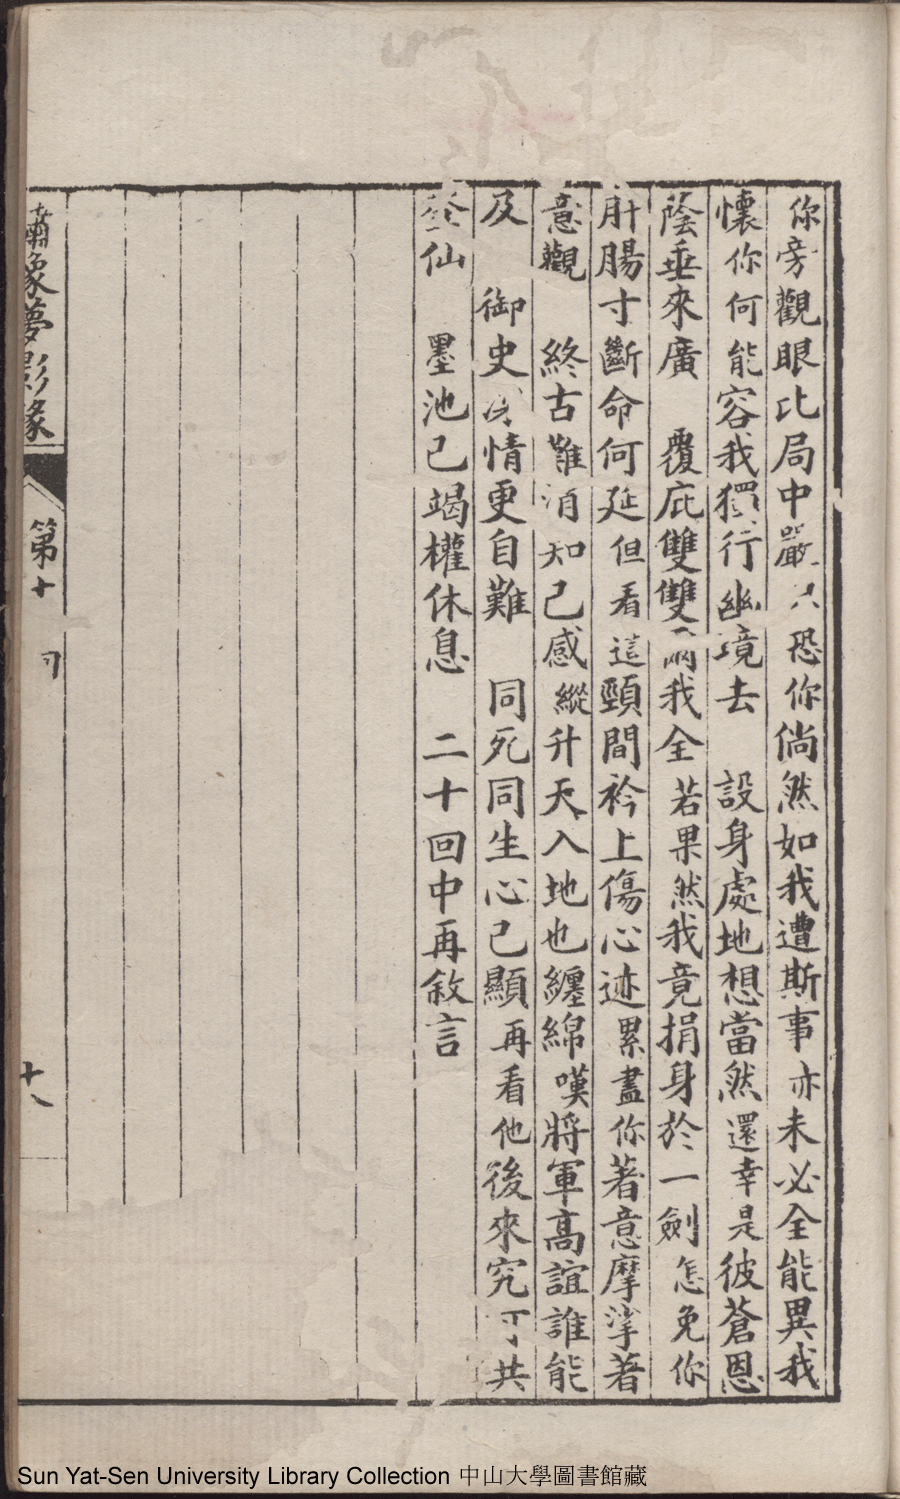 你旁觀眼比局中嚴只恐你倘然如我遭斯事亦未必全能異我
懷你何能容我獨行幽境去 設身處地想當然還幸是彼蒼恩
蔭垂來廣 覆庇雙雙兩我全若果然我竟捐身於一劍怎免你
肝腸寸斷命何延但看這頸間衿上傷心迹累盡你著意摩挲著
意觀 終古難消知己感縱升天入地也纏綿嘆將軍高誼誰能
及 御史 情更自難 同死同生心已顯再看他後來究可共
登仙 墨池已竭權休息 二十回中再敘言
瀟 夢影緣
第十 回
十八
Sun Yat-Sen University Library Collection 中山大學圖書館藏